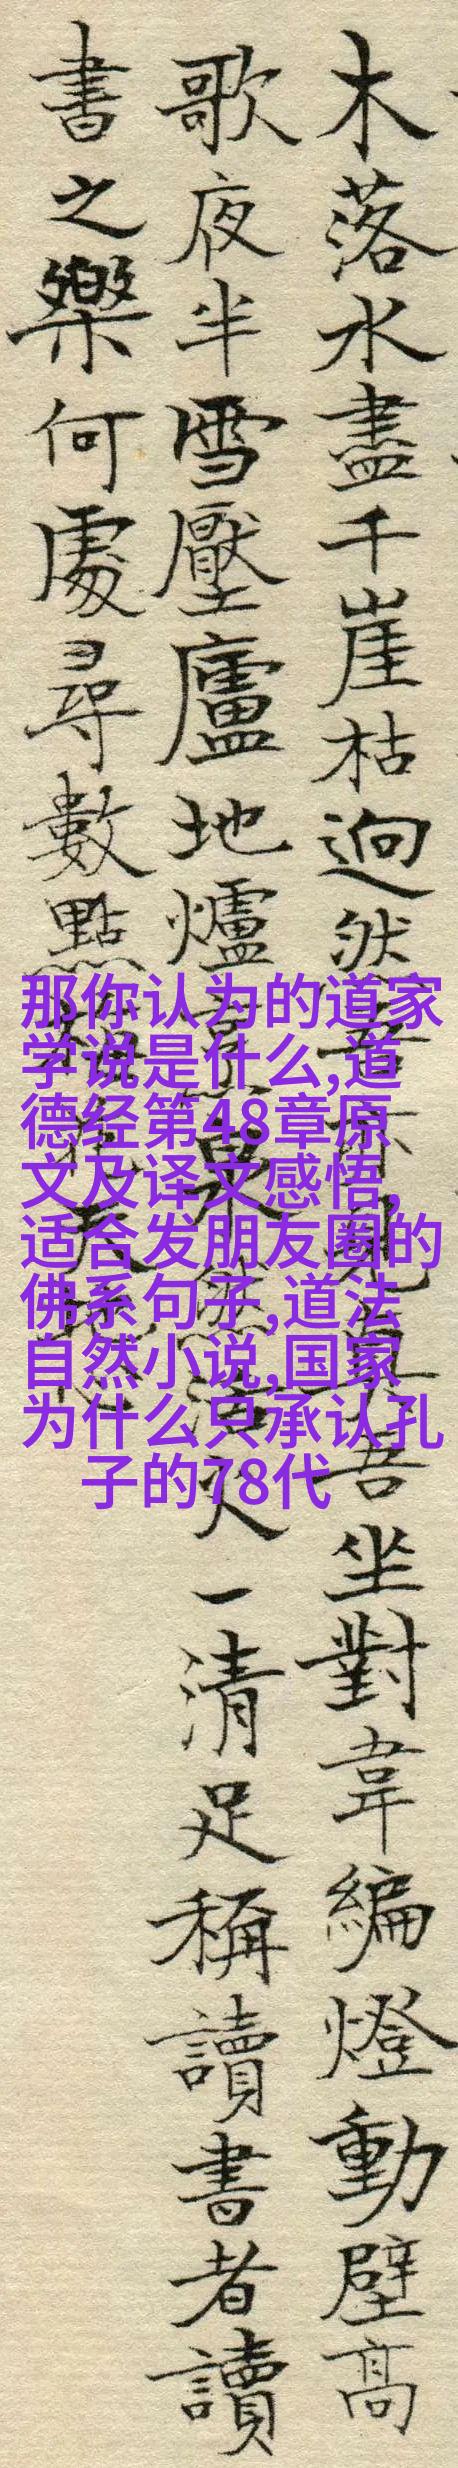 木落水盡千崖枯迥然吾亦見真吾坐對韋編燈動壁高
歌夜半雪壓廬地爐茶鼎烹活火一清足稱讀書者讀
書之樂何處尋數點梅花天地心
那你认为的道家
学说是什么,道
德经第48章原
文及译文感悟,
适合发朋友圈的
佛系句子,道法
自然小说,国家
为什么只承认孔
子的78代